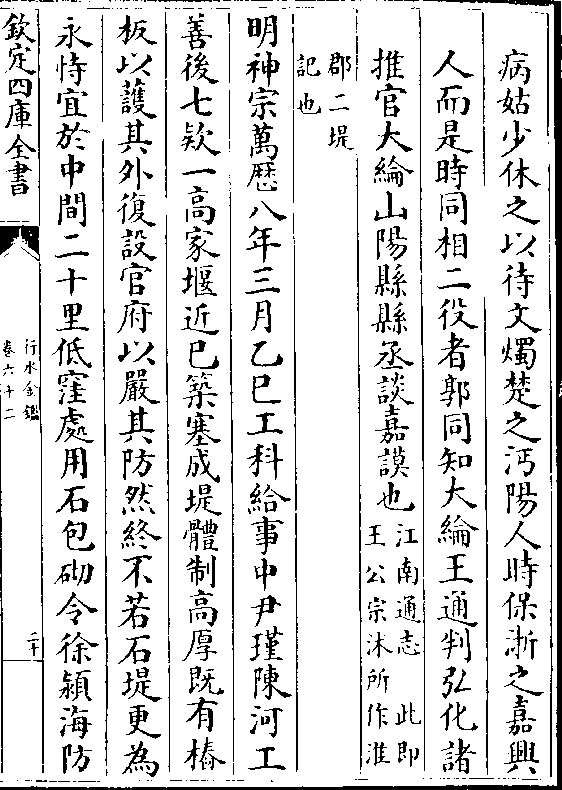 病姑少休之以待文燭楚之沔陽人時保浙之嘉興
人而是時同相二役者郭同知大綸王通判弘化諸
推官大綸山陽縣縣丞談嘉謨也江南通志　此即
王公宗沐所作淮
郡二堤
記也
明神宗萬歷八年三月乙巳工科給事中尹瑾陳河工
善後七欵一高家堰近已築塞成堤體制高厚既有樁
板以護其外復設官府以嚴其防然終不若石堤更為
永恃宜於中間二十里低窪處用石包砌令徐潁海防
欽定四庫全書
行水金鑑
卷六十二
二十